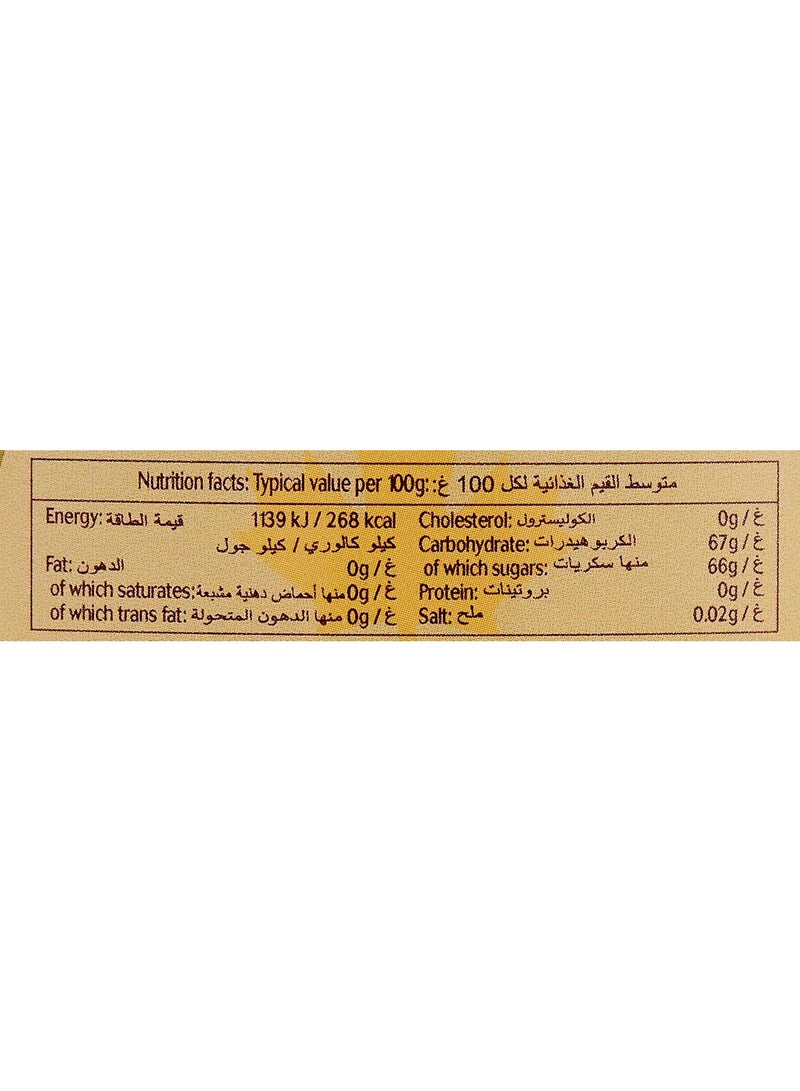 Nutrition facts: Typical value per 100g: متوسط القيم الغذائية لكل 100 غ:
Energy: قيمة الطاقة 1139 kJ / 268 kcal
كيلو كالوري / كيلو جول
Fat: الدهون 0g / غ
of which saturates: منها أحماض دهنية مشبعة 0g / غ
of which trans fat: منها الدهون المتحولة 0g / غ
Cholesterol: الكوليسترول 0g / غ
Carbohydrate: الكربوهيدرات 67g / غ
of which sugars: منها سكريات 66g / غ
Protein: بروتينات 0g / غ
Salt: ملح 0.02g / غ